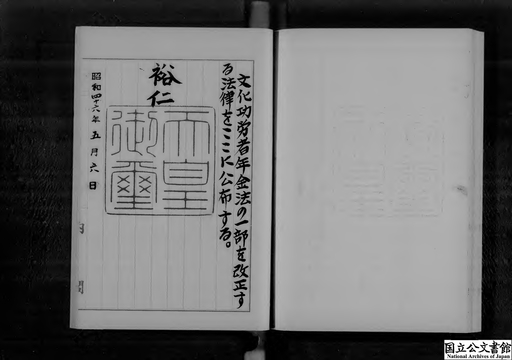 文化功労者年金法の一部を改正す
る法律をここに公布する。
裕仁
天皇
御璽
昭和四十六年五月六日
内閣
国立公文書館
National Archives of Japan